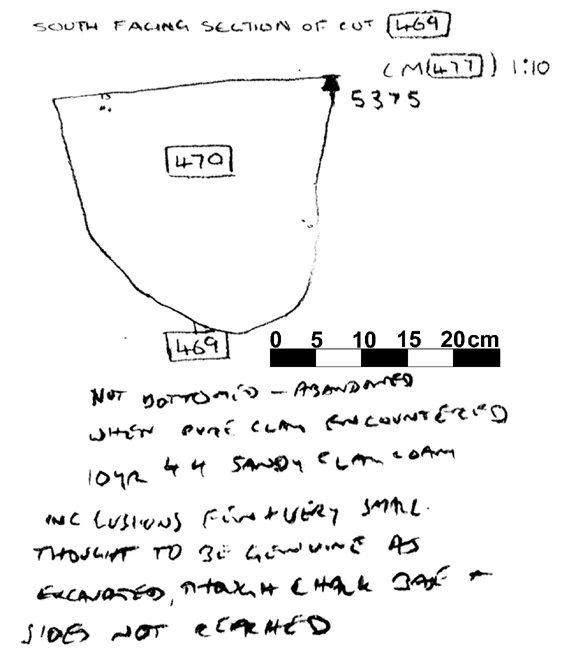 SOUTH FACING SECTION OF CUT 469
(M(477)) 1:10
5375
470
469
0 5 10 15 20cm
NOT BOTTOMED - ABANDONED
WHEN PURE CLAY ENCOUNTERED
10YR 4 4 SANDY CLAY LOAM
INCLUSIONS FEW + VERY SMALL.
THOUGHT TO BE GENUINE AS
EXCAVATED, THOUGH CHALK BASE +
SIDES NOT REACHED